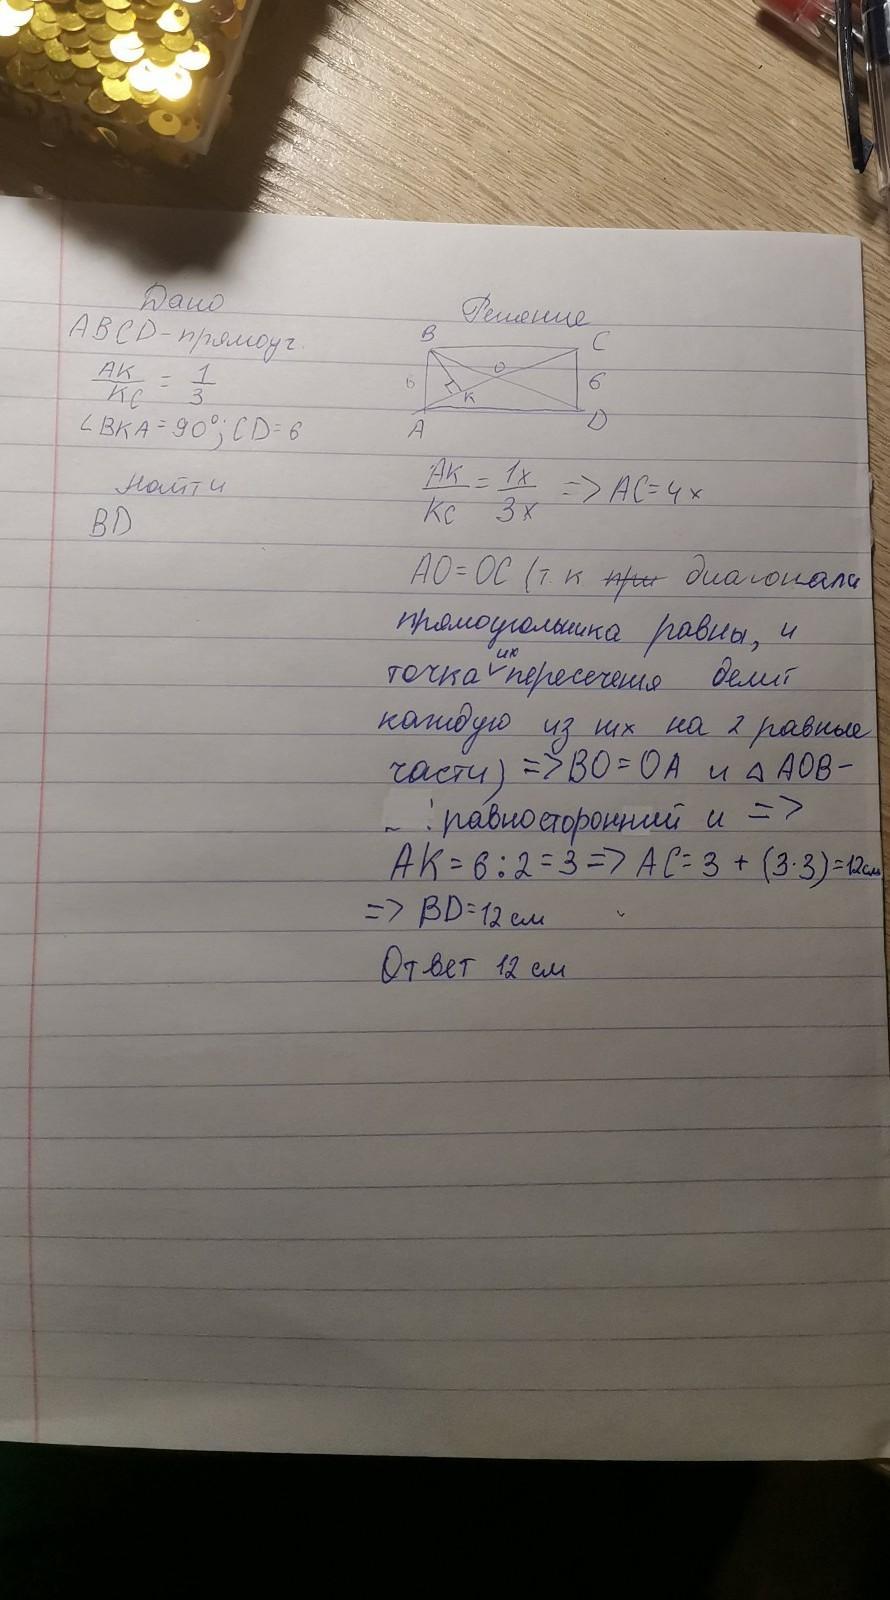 Дано
ABCD-прямоуг.
AK/KC = 1/3
∠BKA=90°; CD=6
Найти
BD
Решение
B C
O
6 K 6
A D
AK/KC = 1x/3x => AC=4x
AO=OC (т.к при диагонали
прямоугольника равны, и
точка их пересечения делит
каждую из них на 2 равные
части) => BO=OA и △AOB-
равносторонний и =>
AK=6:2=3=> AC=3+(3·3)=12см
=> BD=12 см
Ответ 12 см